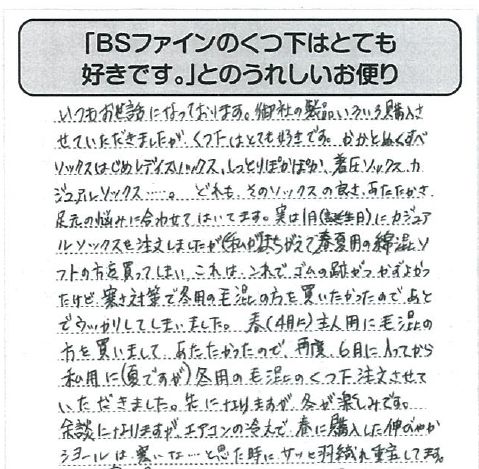 「BSファインのくつ下はとても
好きです。」とのうれしいお便り
いつもお世話になっております。御社の製品いろいろ購入さ
せていただきましたが、くつ下はとても好きです。かかとぬくすべ
ソックスはじめレディスソックス、しっとりぽかぽか、着圧ソックス、カ
ジュアルソックス……。どれも、そのソックスの良さ、あたたかさ
足元の悩みに合わせてはいてます。実は1月(誕生月)にカジュア
ルソックスを注文しましたが(私が)まちがえて春夏用の綿混ソ
フトの方を買ってしまい、これは、これでゴムの跡がつかずよかっ
たけど、寒さ対策で冬用の毛混の方を買いたかったので、あと
でうっかりしてしまいました。春(4月に)主人用に毛混の
方を買いまして、あたたかかったので、再度、6月に入ってから
私用に(夏ですが)冬用の毛混のくつ下注文させて
いただきました。先になりますが、冬が楽しみです。
余談になりますが、エアコンの冷えで、春に購入した伸びやか
ショールは、寒いな…と思た時に、サッと羽織れ重宝してます。